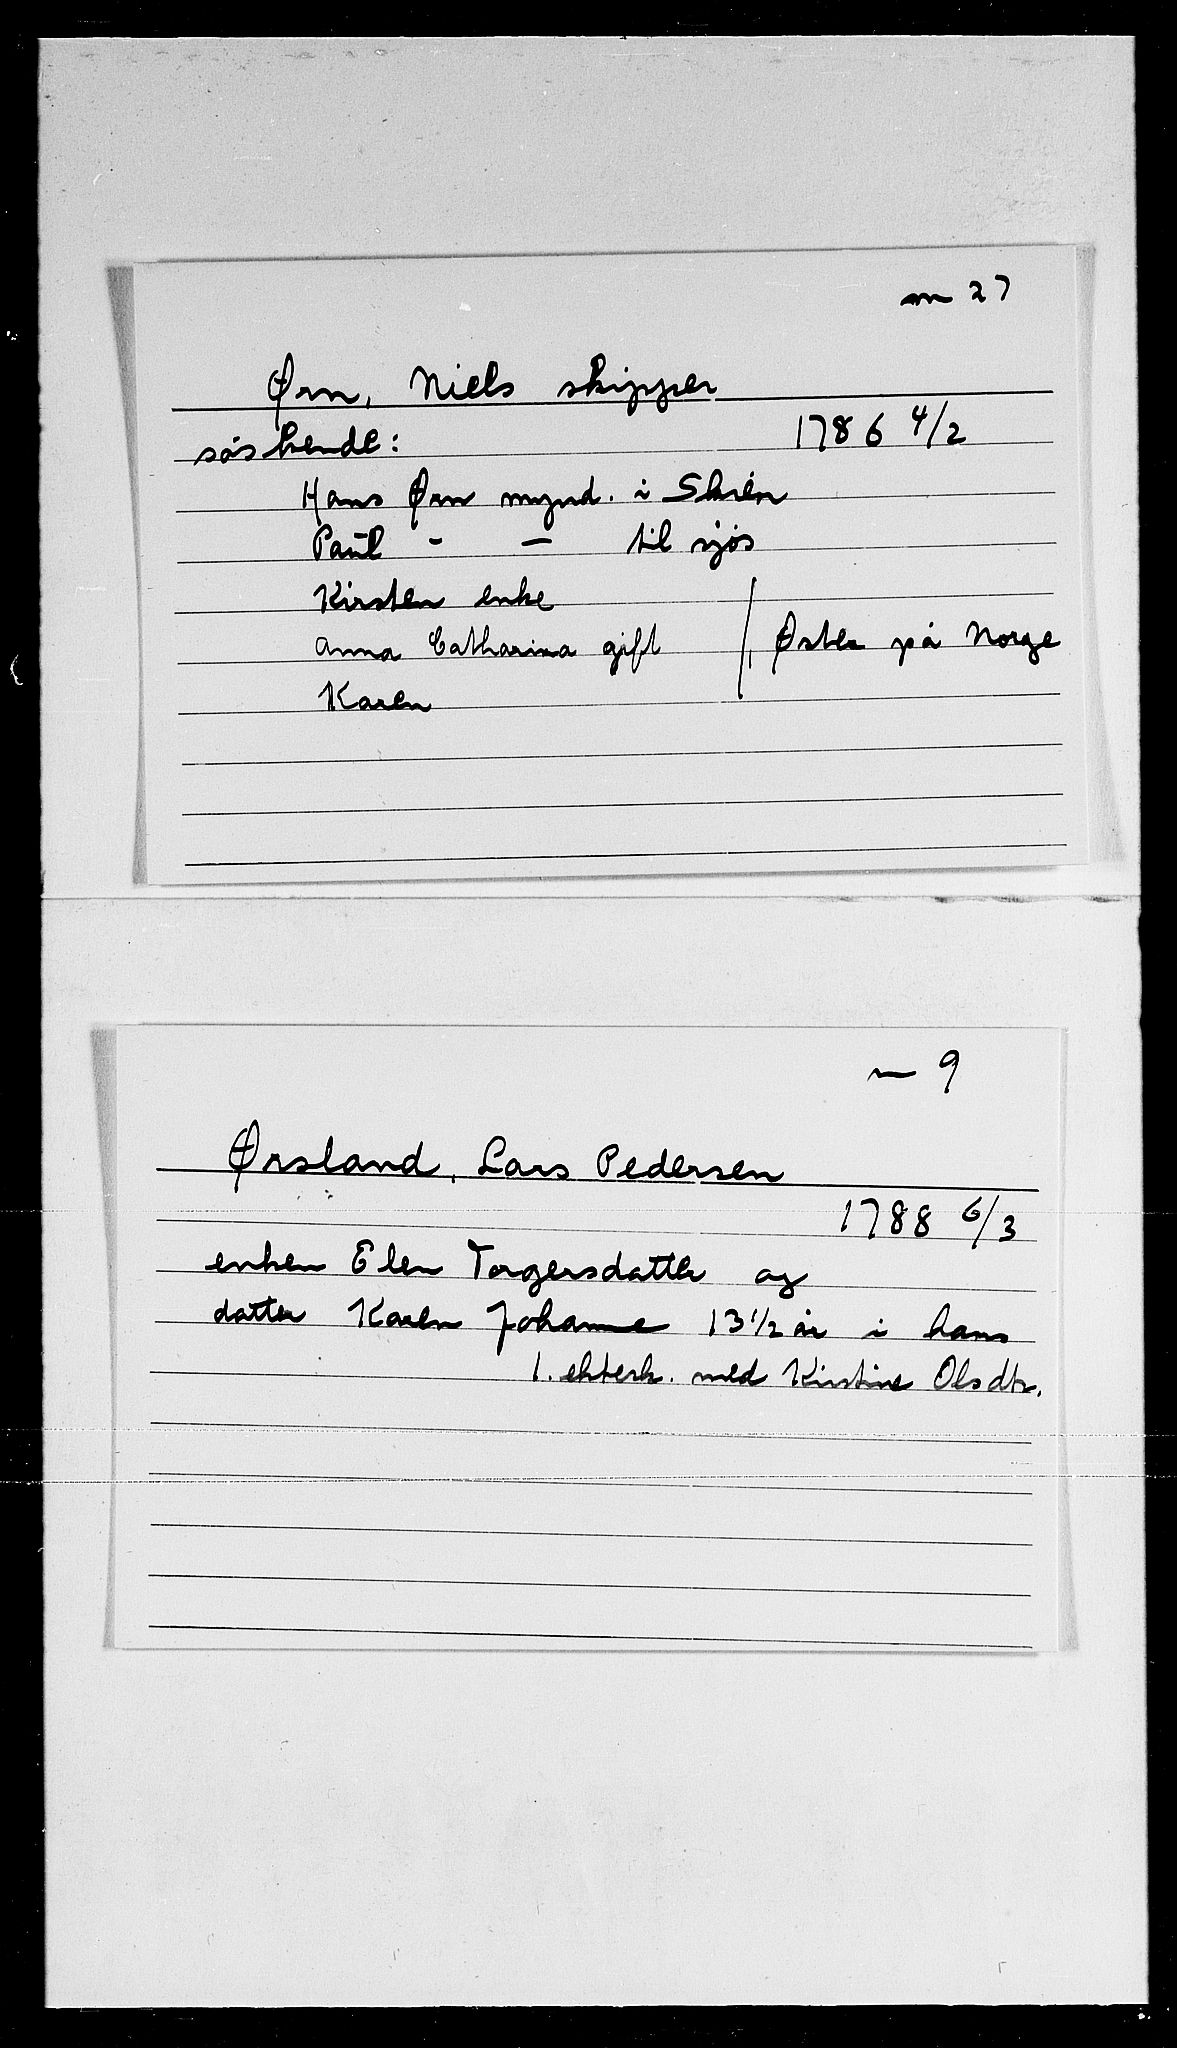 m 27
Ørn, Niels skipper
søskende: 1786 4/2
Hans Ørn mynd. i Skien
Paul - - til sjøs
Kirsten enke
Anna Catharina gift / Øster på Norge
Karen
m 9
Ørsland, Lars Pedersen
1788 6/3
enken Elen Torgersdatter og
datter Karen Johanne 13 1/2 år i hans
1. ektesk. med Kirstine Olsdtr.